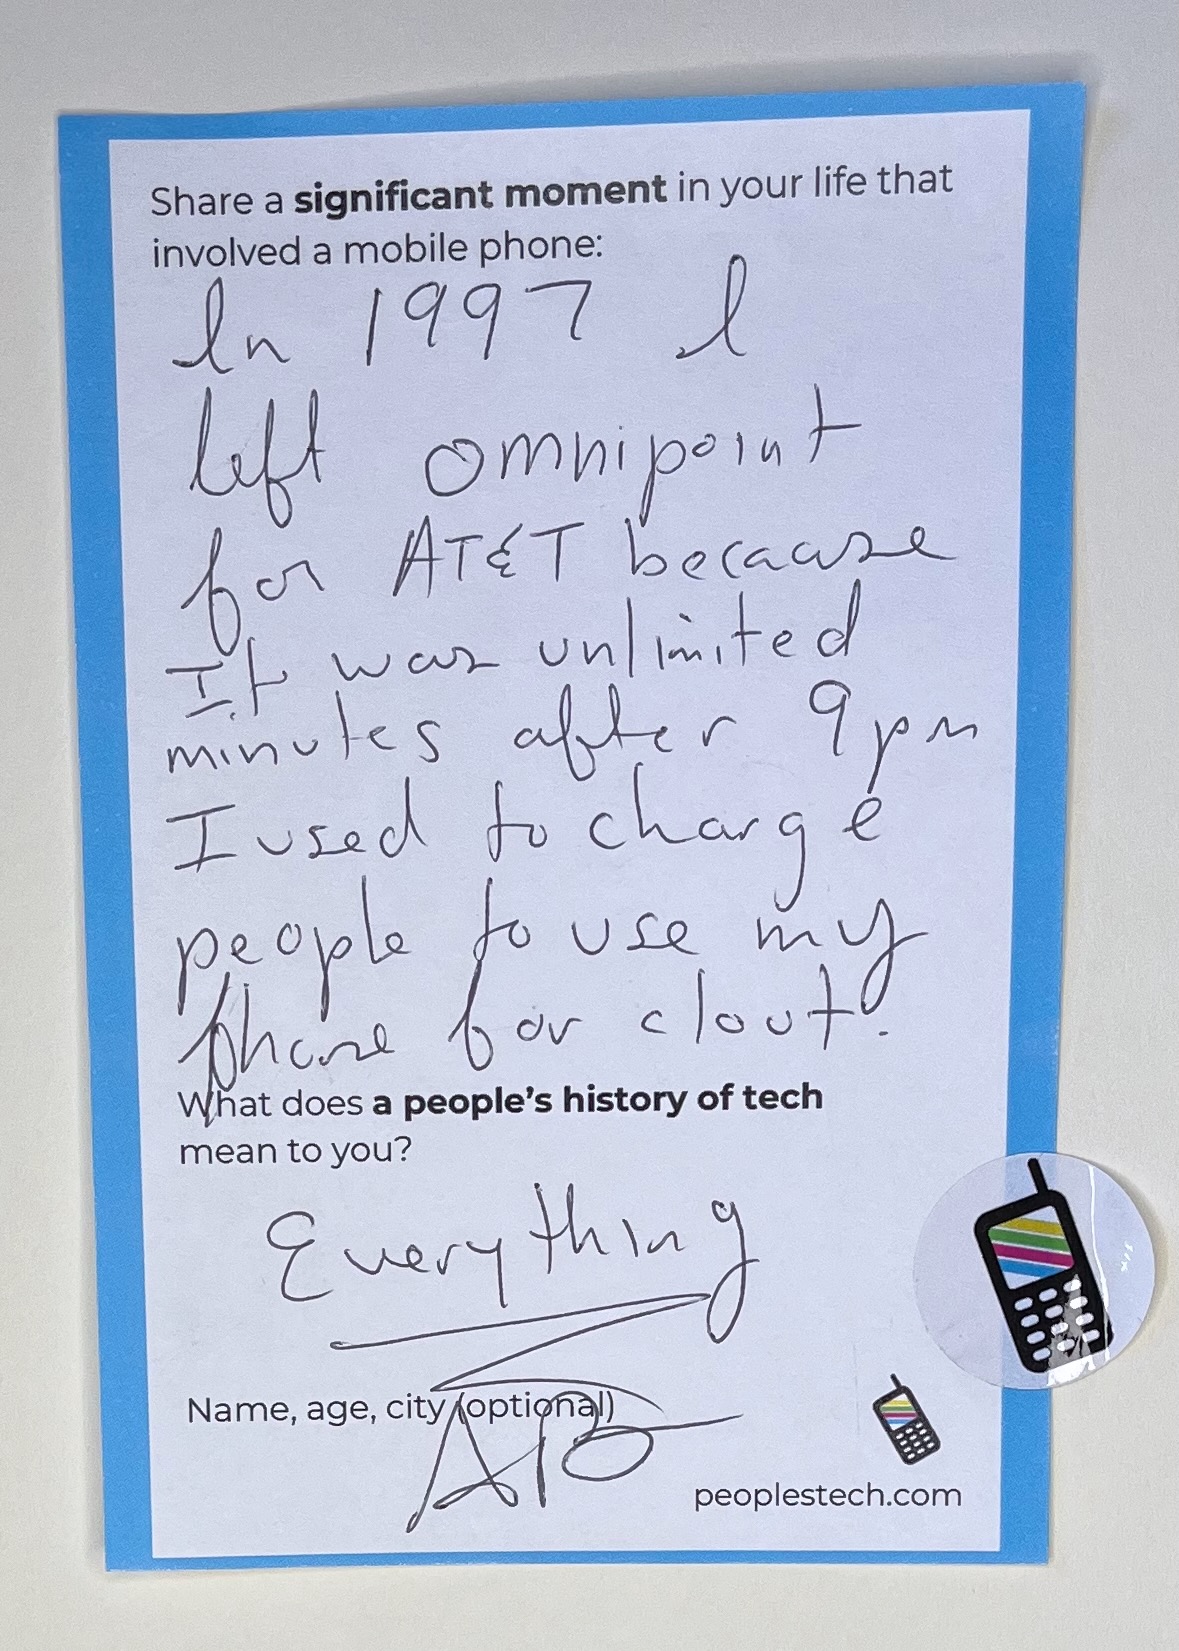 Share a significant moment in your life that
involved a mobile phone:
In 1997 I
left omnipoint
for AT&T because
It was unlimited
minutes after 9pm
I used to charge
people to use my
phone for clout.
What does a people's history of tech
mean to you?
Everything
Name, age, city (optional)
peoplestech.com